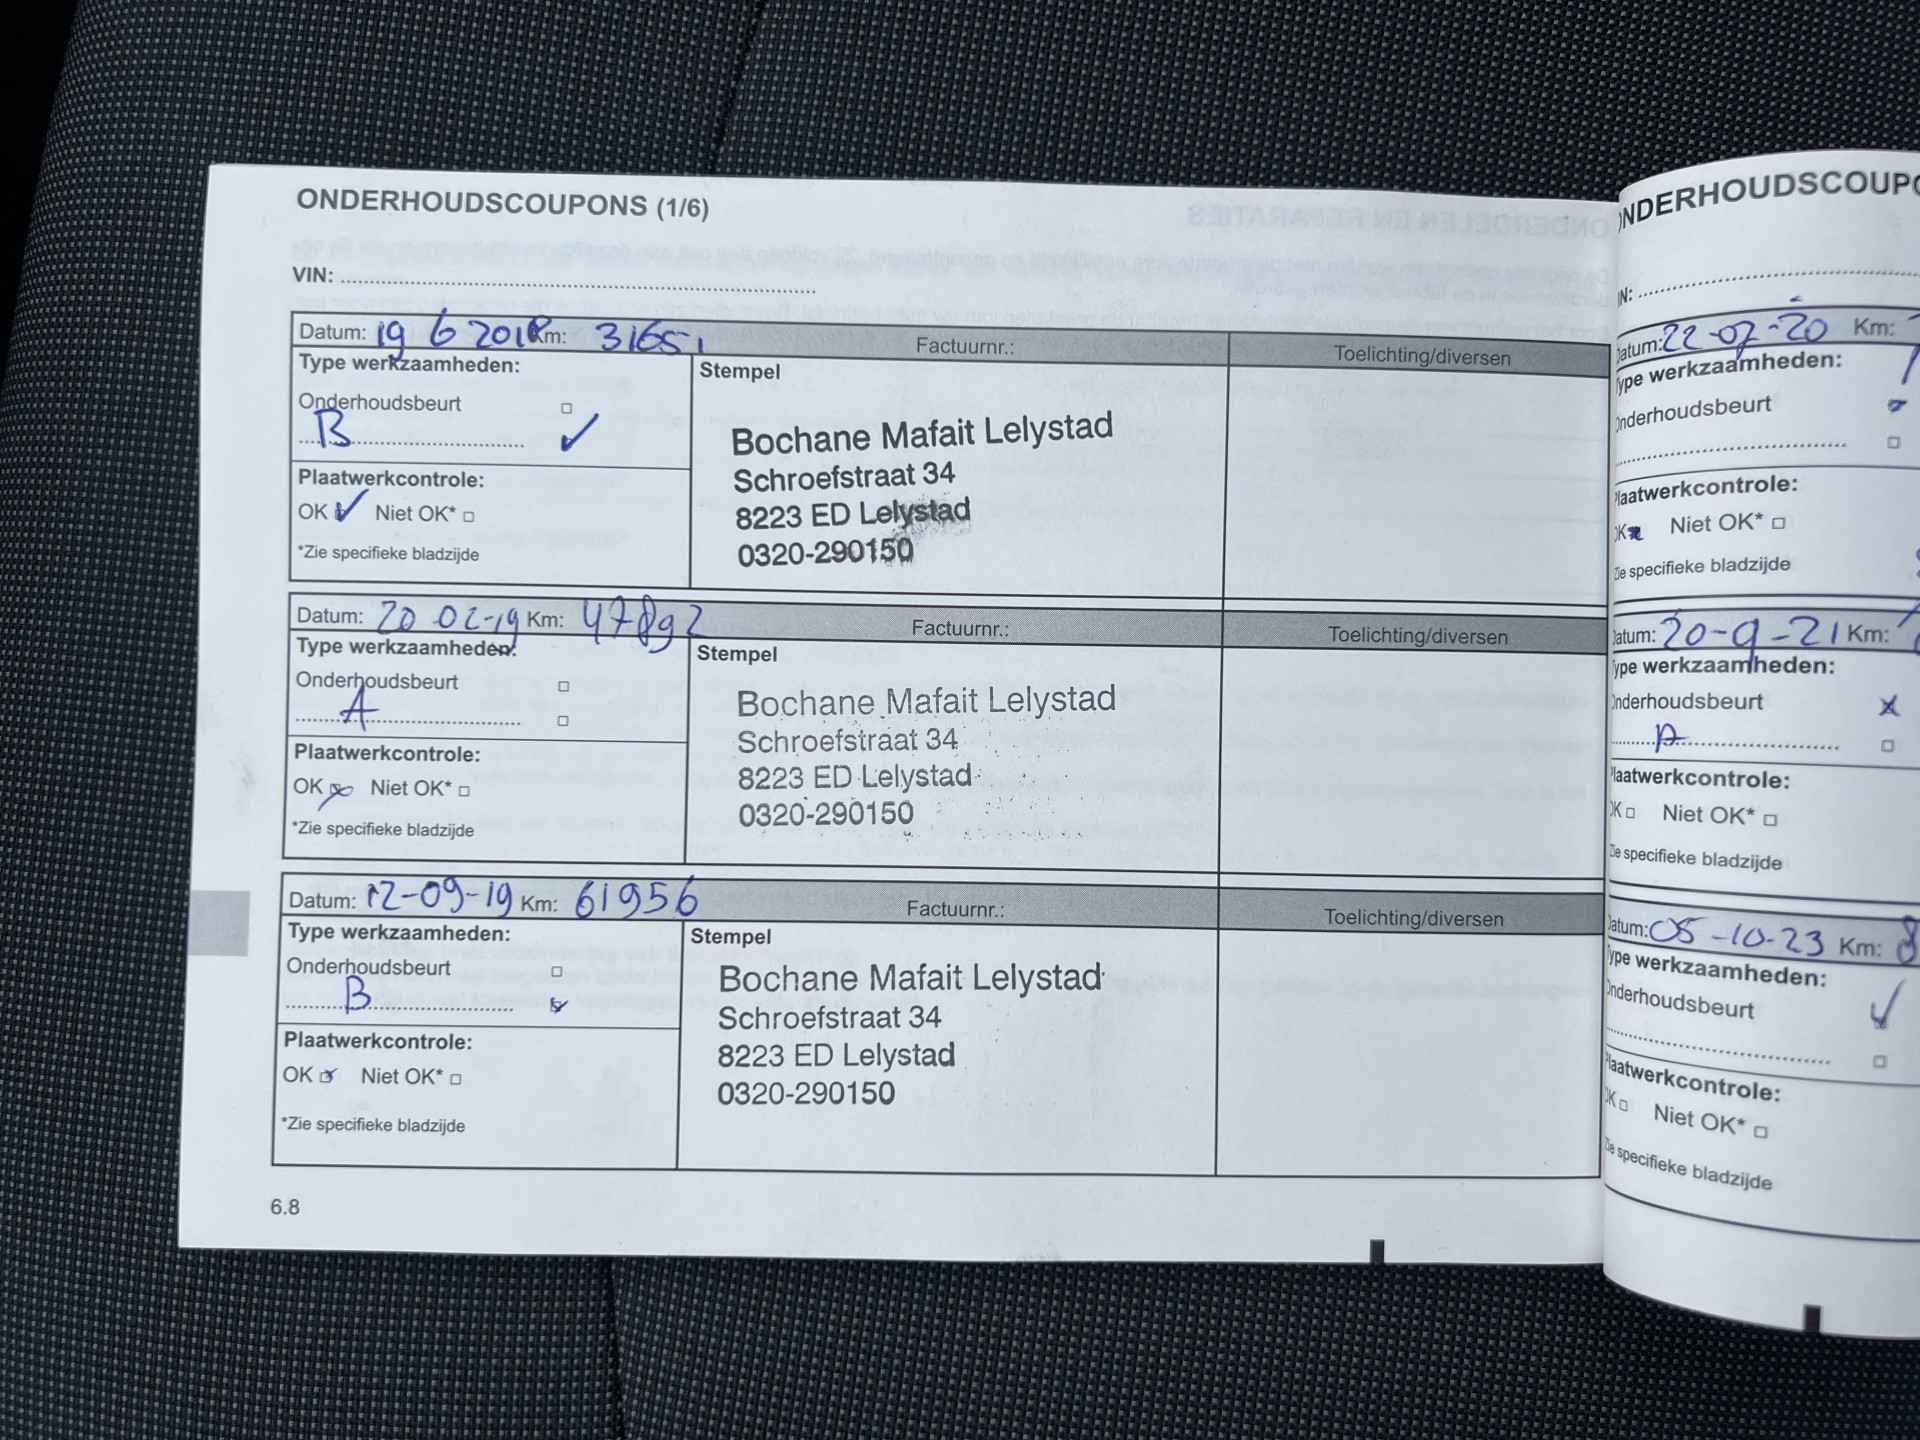 ONDERHOUDSCOUPONS (1/6)
VIN:
Datum: 19 6 2018 Km: 31651 Factuurnr.: Toelichting/diversen
Type werkzaamheden:
Stempel
Onderhoudsbeurt
B
Plaatwerkcontrole:
OK Niet OK*
*Zie specifieke bladzijde
Bochane Mafait Lelystad
Schroefstraat 34
8223 ED Lelystad
0320-290150
Datum: 20 02-19 Km: 47892 Factuurnr.: Toelichting/diversen
Type werkzaamheden:
Stempel
Onderhoudsbeurt
A
Plaatwerkcontrole:
OK Niet OK*
*Zie specifieke bladzijde
Bochane Mafait Lelystad
Schroefstraat 34
8223 ED Lelystad
0320-290150
Datum: 12-09-19 Km: 61956 Factuurnr.: Toelichting/diversen
Type werkzaamheden:
Stempel
Onderhoudsbeurt
B
Plaatwerkcontrole:
OK Niet OK*
*Zie specifieke bladzijde
Bochane Mafait Lelystad
Schroefstraat 34
8223 ED Lelystad
0320-290150
6.8
NDERHOUDSCOUPO
IN:
Datum: 22-07-20 Km:
Type werkzaamheden:
Onderhoudsbeurt
Plaatwerkcontrole:
OK Niet OK*
Zie specifieke bladzijde
Datum: 20-9-21 Km:
Type werkzaamheden:
Onderhoudsbeurt
A
Plaatwerkcontrole:
OK Niet OK*
Zie specifieke bladzijde
Datum: 05-10-23 Km: 8
Type werkzaamheden:
Onderhoudsbeurt
Plaatwerkcontrole:
OK Niet OK*
Zie specifieke bladzijde